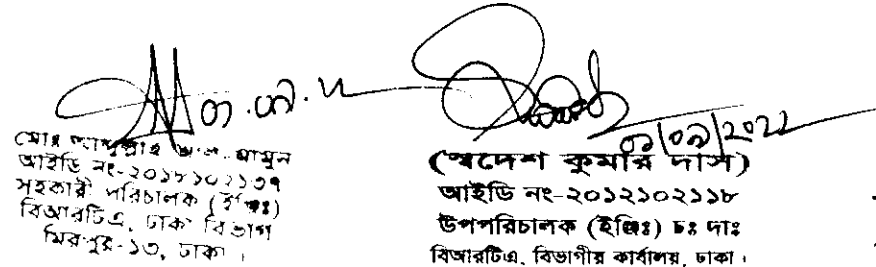 ০১/০৯/2022
মোঃ আব্দুল্লাহ আল মামুন
আইডি নং-২০১৮১০২১৩৭
সহকারী পরিচালক (ইঞ্জিঃ)
বিআরটিএ, ঢাকা বিভাগ
মিরপুর-১৩, ঢাকা ।
(স্বদেশ কুমার দাস)
আইডি নং-২০১২১০২১১৮
উপপরিচালক (ইঞ্জিঃ) চঃ দাঃ
বিআরটিএ, বিভাগীয় কার্যালয়, ঢাকা ।